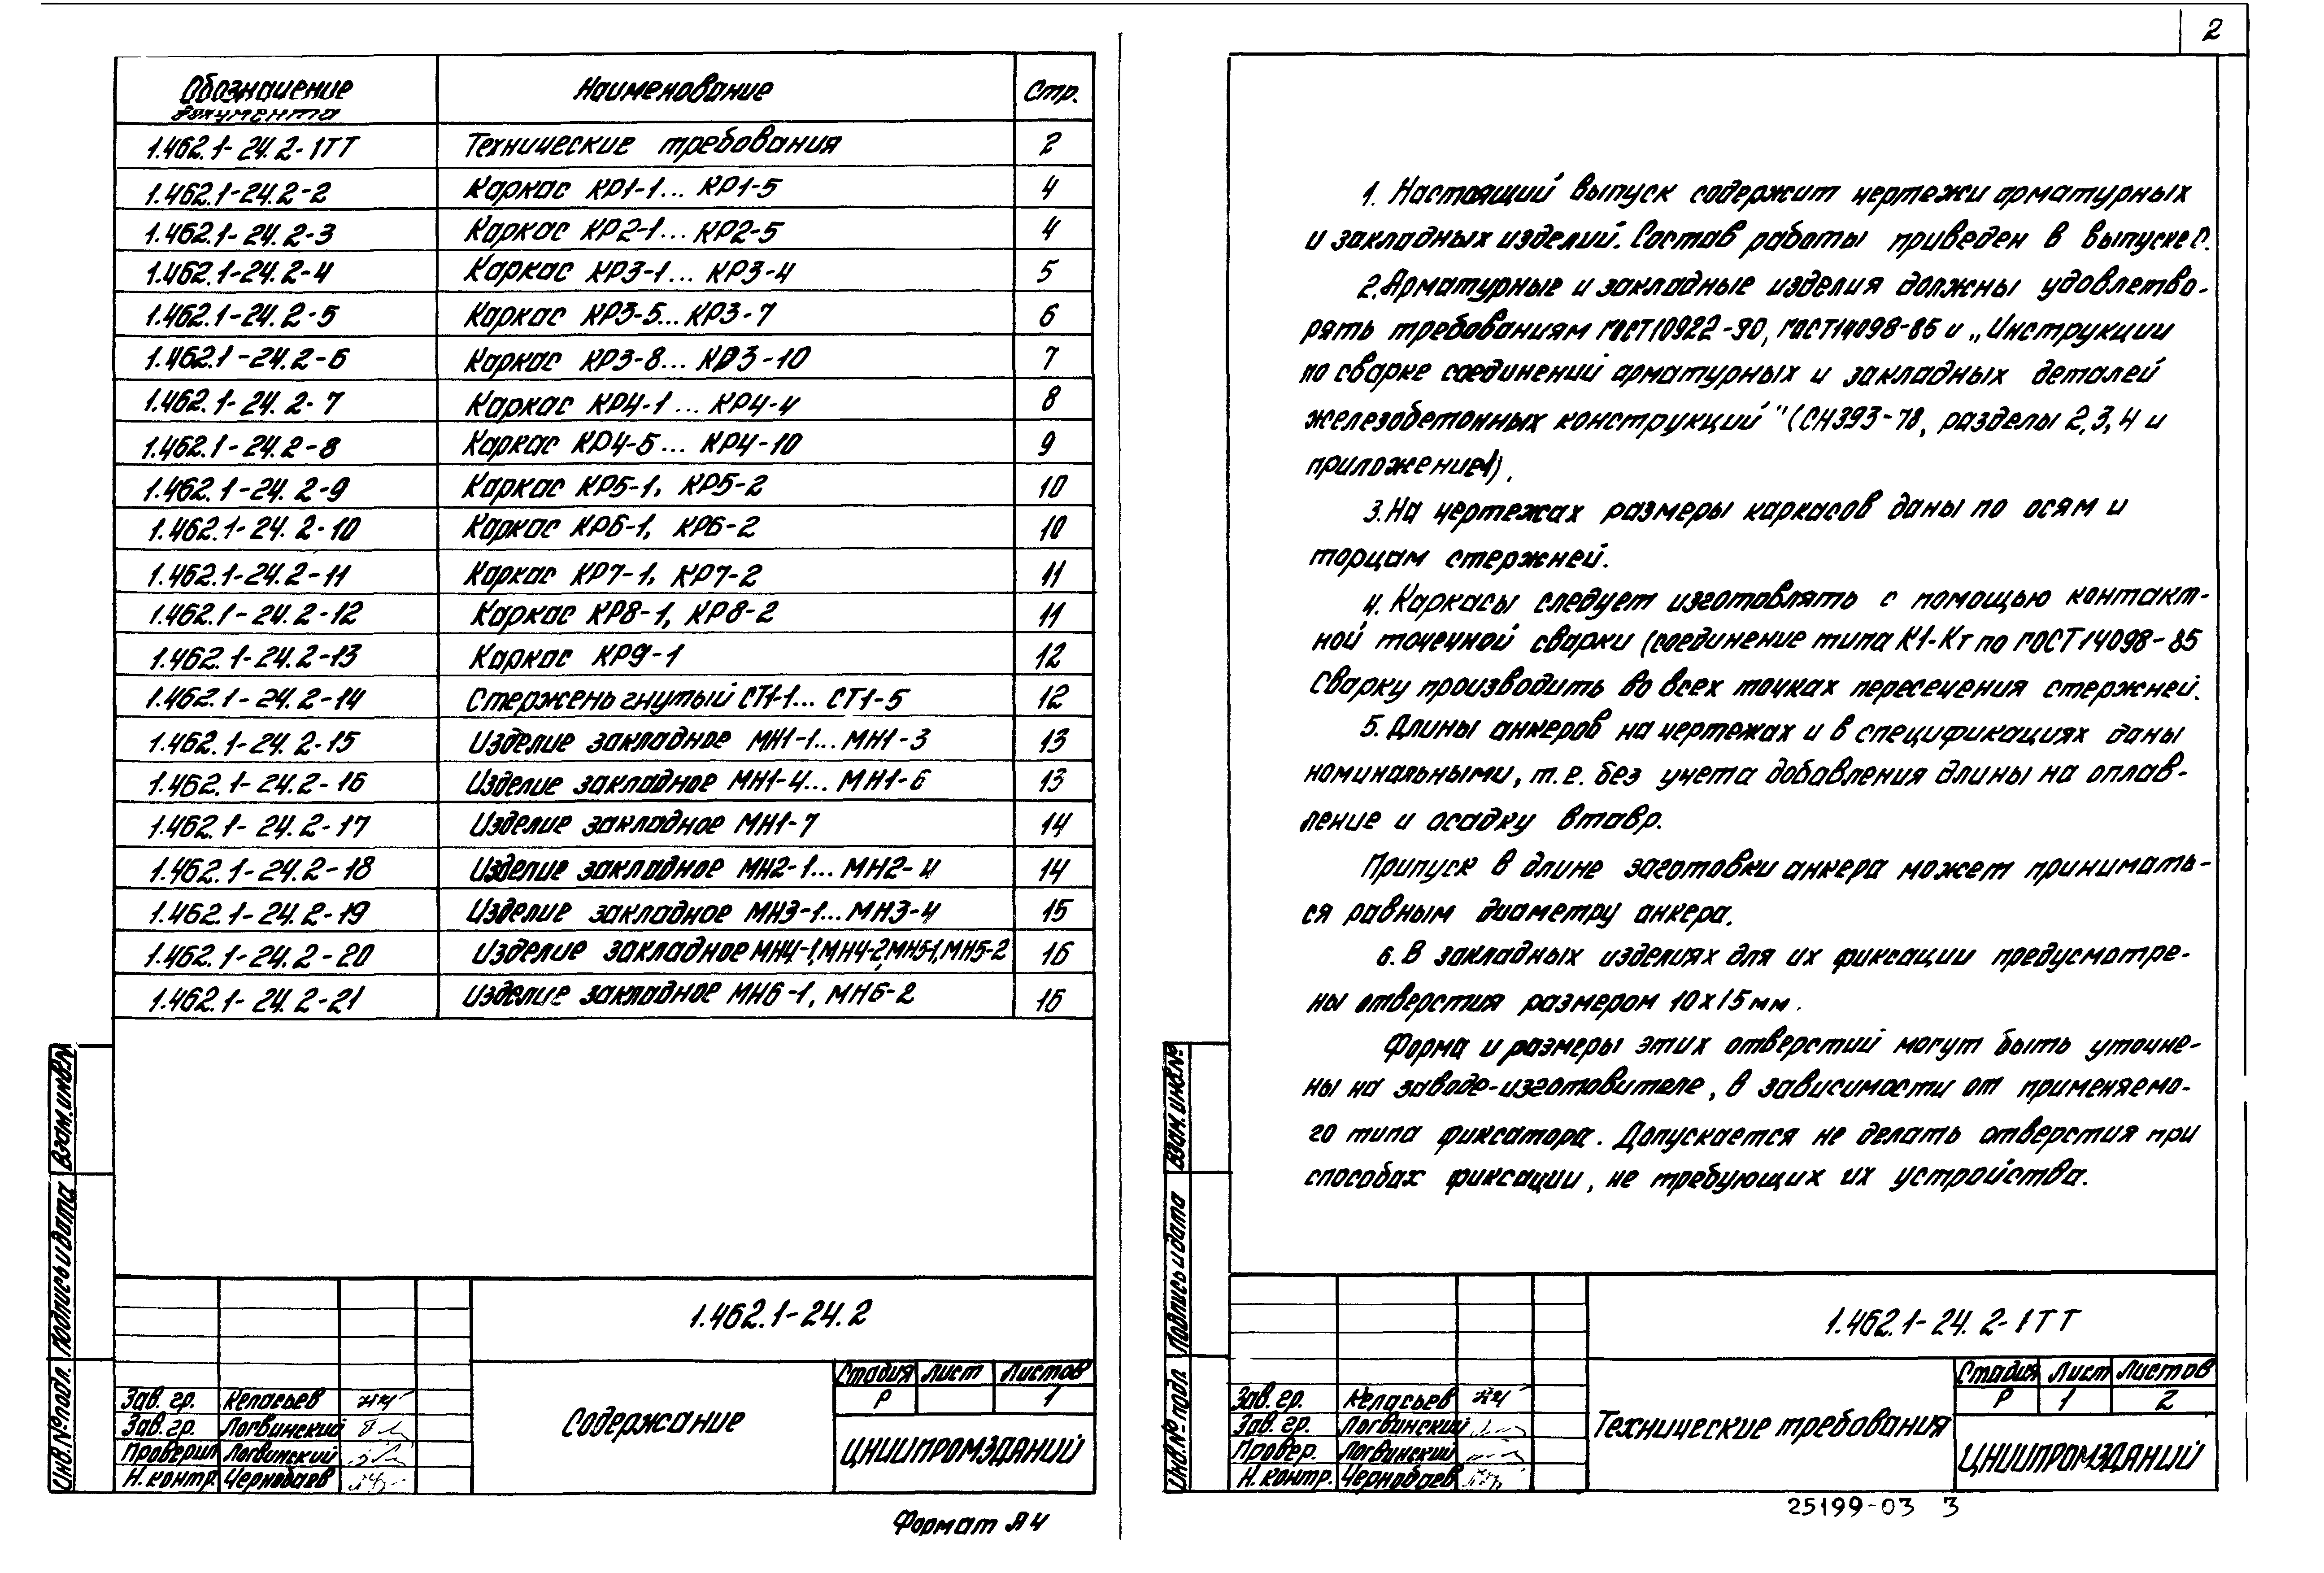 2
Обозначение документа Наименование Стр.
1.462.1-24.2-1ТТ Технические требования 2
1.462.1-24.2-2 Каркас КР1-1... КР1-5 4
1.462.1-24.2-3 Каркас КР2-1... КР2-5 4
1.462.1-24.2-4 Каркас КР3-1... КР3-4 5
1.462.1-24.2-5 Каркас КР3-5...КР3-7 6
1.462.1-24.2-6 Каркас КР3-8... КР3-10 7
1.462.1-24.2-7 Каркас КР4-1... КР4-4 8
1.462.1-24.2-8 Каркас КР4-5... КР4-10 9
1.462.1-24.2-9 Каркас КР5-1, КР5-2 10
1.462.1-24.2-10 Каркас КР6-1, КР6-2 10
1.462.1-24.2-11 Каркас КР7-1, КР7-2 11
1.462.1-24.2-12 Каркас КР8-1, КР8-2 11
1.462.1-24.2-13 Каркас КР9-1 12
1.462.1-24.2-14 Стержень гнутый СТ1-1... СТ1-5 12
1.462.1-24.2-15 Изделие закладное МН1-1...МН1-3 13
1.462.1-24.2-16 Изделие закладное МН1-4... МН1-6 13
1.462.1-24.2-17 Изделие закладное МН1-7 14
1.462.1-24.2-18 Изделие закладное МН2-1...МН2-4 14
1.462.1-24.2-19 Изделие закладное МН3-1...МН3-4 15
1.462.1-24.2-20 Изделие закладное МН4-1,МН4-2,МН5-1,МН5-2 16
1.462.1-24.2-21 Изделие закладное МН6-1, МН6-2 16
Взам.инв.№
Подпись и дата
Инв.№ подл.
1.462.1-24.2
Стадия Лист Листов
Р 1
Содержание
ЦНИИПРОМЗДАНИЙ
Зав. гр. Келасьев
Зав. гр. Логвинский
Проверил Логвинский
Н. контр. Чернобаев
Формат А4
1. Настоящий выпуск содержит чертежи арматурных
и закладных изделий. Состав работы приведен в выпуске 0.
2.Арматурные и закладные изделия должны удовлетво-
рять требованиям ГОСТ10922-90, ГОСТ14098-85 и „Инструкции
по сварке соединений арматурных и закладных деталей
железобетонных конструкций" (СН393-78, разделы 2,3,4 и
приложение1).
3.На чертежах размеры каркасов даны по осям и
торцам стержней.
4. Каркасы следует изготовлять с помощью контакт-
ной точечной сварки (соединение типа К1-Кт по ГОСТ14098-85
Сварку производить во всех точках пересечения стержней.
5. Длины анкеров на чертежах и в спецификациях даны
номинальными, т.е. без учета добавления длины на оплав-
ление и осадку втавр.
Припуск в длине заготовки анкера может принимать-
ся равным диаметру анкера.
6. В закладных изделиях для их фиксации предусмотре-
ны отверстия размером 10х15мм.
Форма и размеры этих отверстий могут быть уточне-
ны на заводе-изготовителе, в зависимости от применяемо-
го типа фиксатора. Допускается не делать отверстия при
способах фиксации, не требующих их устройства.
Взам.инв.№
Подпись и дата
Инв.№ подл
1.462.1-24.2-1ТТ
Стадия Лист Листов
Р 1 2
Технические требования
ЦНИИПРОМЗДАНИЙ
Зав. гр. Келасьев
Зав. гр. Логвинский
Провер. Логвинский
Н. контр. Чернобаев
25199-03 3